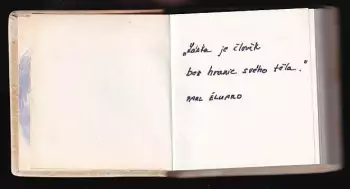 „Láska je člověk
bez hranic svého těla."
PAUL ÉLUARD